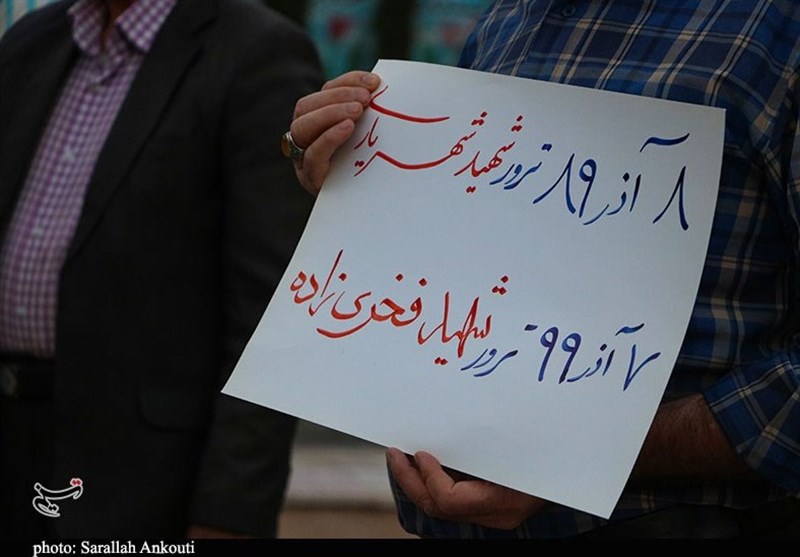 ۸ آذر ۸۹ ترور شهید شهریاری
۷ آذر ۹۹ ترور شهید فخری زاده
تسنیم
photo: Sarallah Ankouti